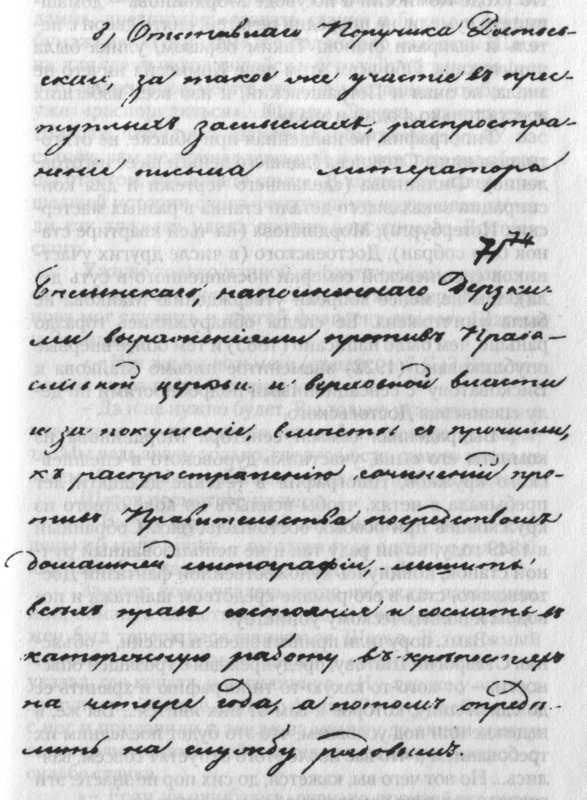 б) Отставнаго Поручика Достоев-
скаго, за такое же участіе въ прес-
тупныхъ замыслахъ, распростра-
неніе письма литератора
Бѣлинскаго, наполненнаго дерзки-
ми выраженіями противъ Право-
славной церкви и верховной власти
и за покушеніе, вмѣстѣ съ прочими,
къ распространенію сочиненій про-
тивъ Правительства посредствомъ
домашней литографіи, лишить
всѣхъ правъ состоянія и сослать въ
каторжную работу въ крѣпостяхъ
на четыре года, а потомъ опредѣ-
лить на службу рядовымъ.